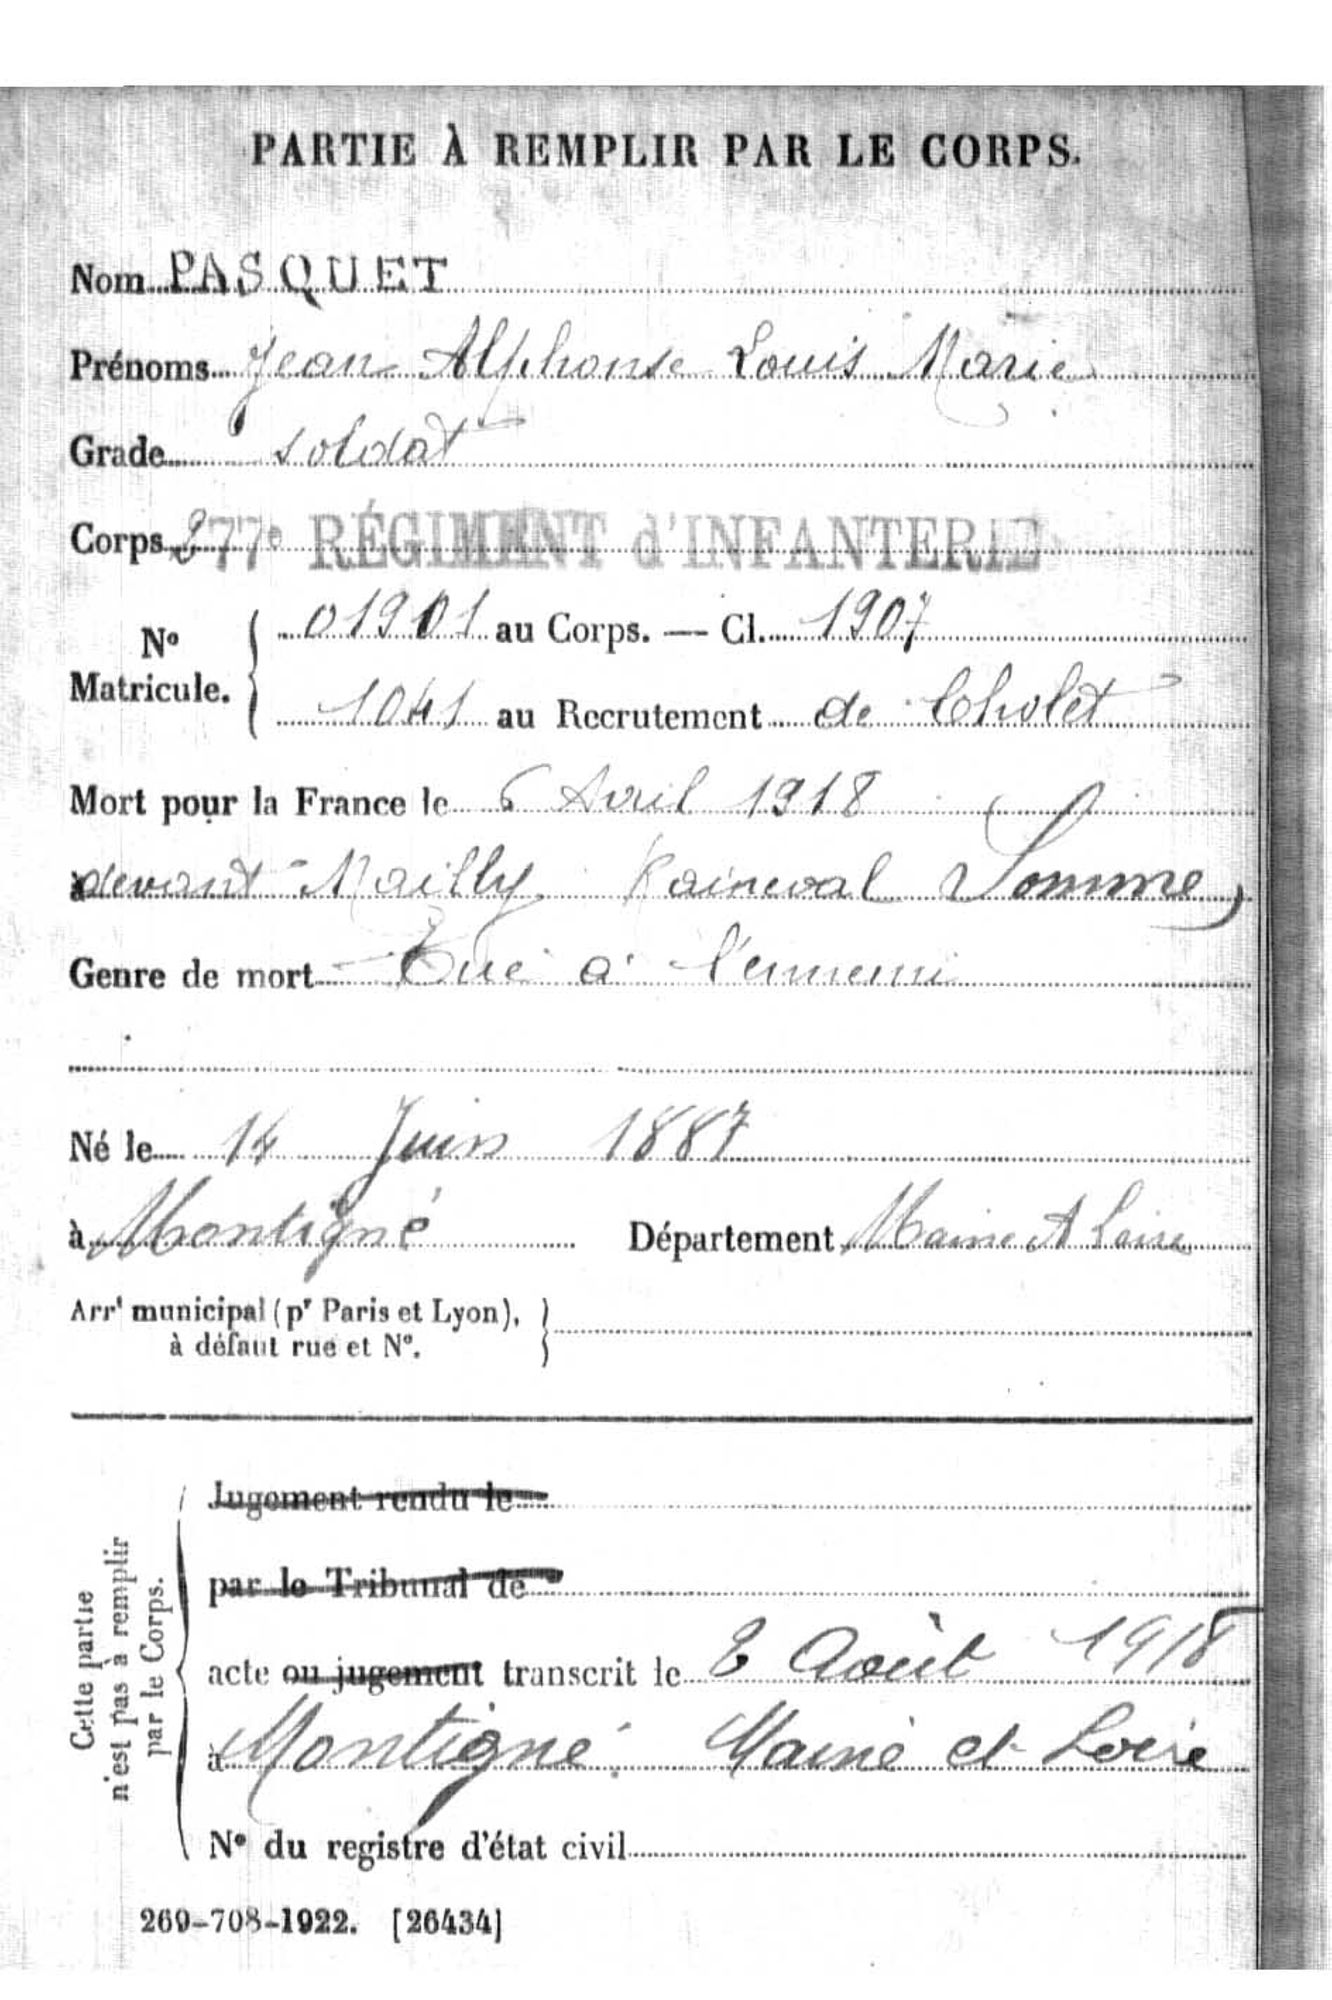 PARTIE À REMPLIR PAR LE CORPS.
Nom PASQUET
Prénoms Jean Alphonse Louis Marie
Grade soldat
Corps 277e RÉGIMENT d'INFANTERIE
No Matricule. { 01901 au Corps. — Cl. 1907
1041 au Recrutement de Cholet
Mort pour la France le 6 Avril 1918
devant Mailly Raineval Somme
Genre de mort Tué à l'ennemi
Né le 14 Juin 1887
à Montigné Département Maine et Loire
Arrt municipal (pr Paris et Lyon), }
à défaut rue et No.
Cette partie
n'est pas à remplir
par le Corps.
Jugement rendu le
par le Tribunal de
acte ou jugement transcrit le 8 Août 1918
à Montigné Maine et Loire
No du registre d'état civil
269-708-1922. [26434]